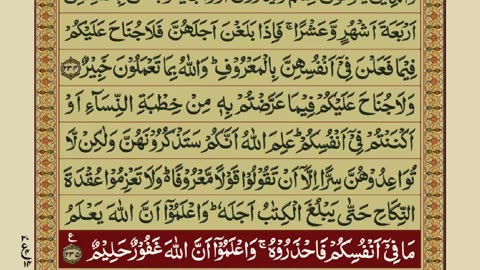 اَرْبَعَةَ اَشْهُرٍ وَّعَشْرًاۚ فَاِذَا بَلَغْنَ اَجَلَهُنَّ فَلَاجُنَاحَ عَلَيْكُمْ
فِيْمَا فَعَلْنَ فِيْٓ اَنْفُسِهِنَّ بِالْمَعْرُوْفِؕ وَاللّٰهُ بِمَا تَعْمَلُوْنَ خَبِيْرٌ ۝۲۳۴
وَلَاجُنَاحَ عَلَيْكُمْ فِيْمَا عَرَّضْتُمْ بِهٖ مِنْ خِطْبَةِ النِّسَآءِ اَوْ
اَكْنَنْتُمْ فِيْٓ اَنْفُسِكُمْؕ عَلِمَ اللّٰهُ اَنَّكُمْ سَتَذْكُرُوْنَهُنَّ وَلٰكِنْ لَّا
تُوَاعِدُوْهُنَّ سِرًّا اِلَّاۤ اَنْ تَقُوْلُوْا قَوْلًا مَّعْرُوْفًاؕ وَلَا تَعْزِمُوْا عُقْدَةَ
النِّكَاحِ حَتّٰى يَبْلُغَ الْكِتٰبُ اَجَلَهٗؕ وَاعْلَمُوْٓا اَنَّ اللّٰهَ يَعْلَمُ
مَا فِيْٓ اَنْفُسِكُمْ فَاحْذَرُوْهُۚ وَاعْلَمُوْٓا اَنَّ اللّٰهَ غَفُوْرٌ حَلِيْمٌ ۝۲۳۵ ع